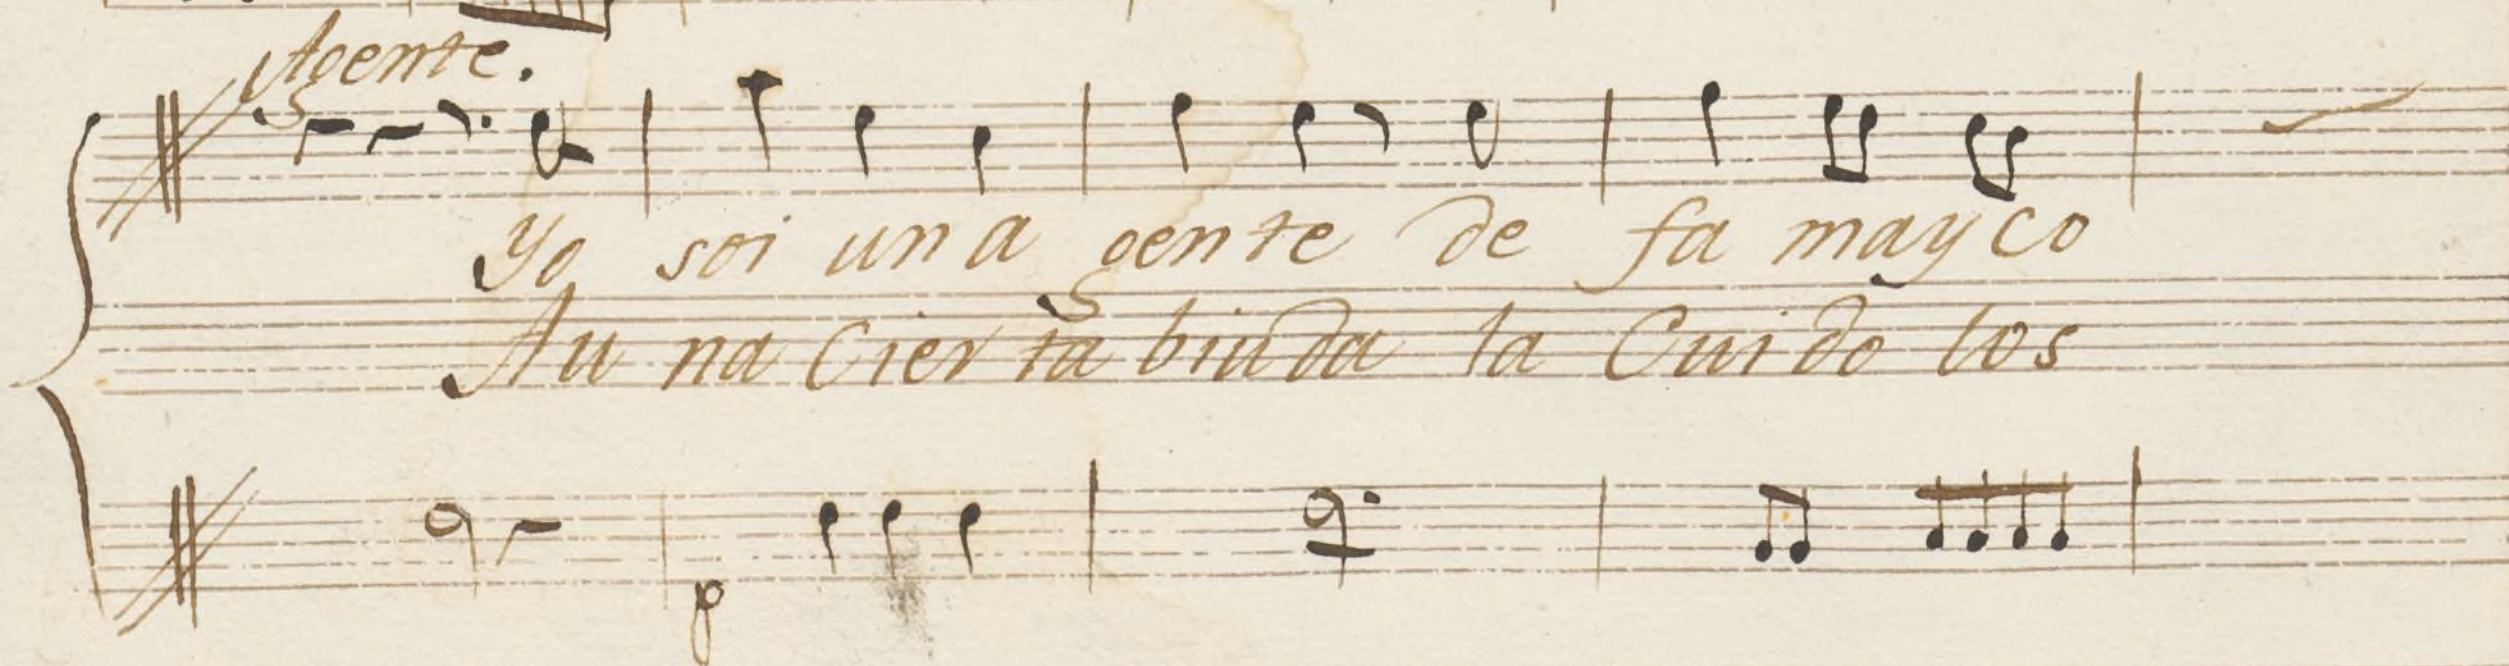 Agente.
Yo soi un a gen te de fa may co
Au na Cier ta biuda la Cuido los